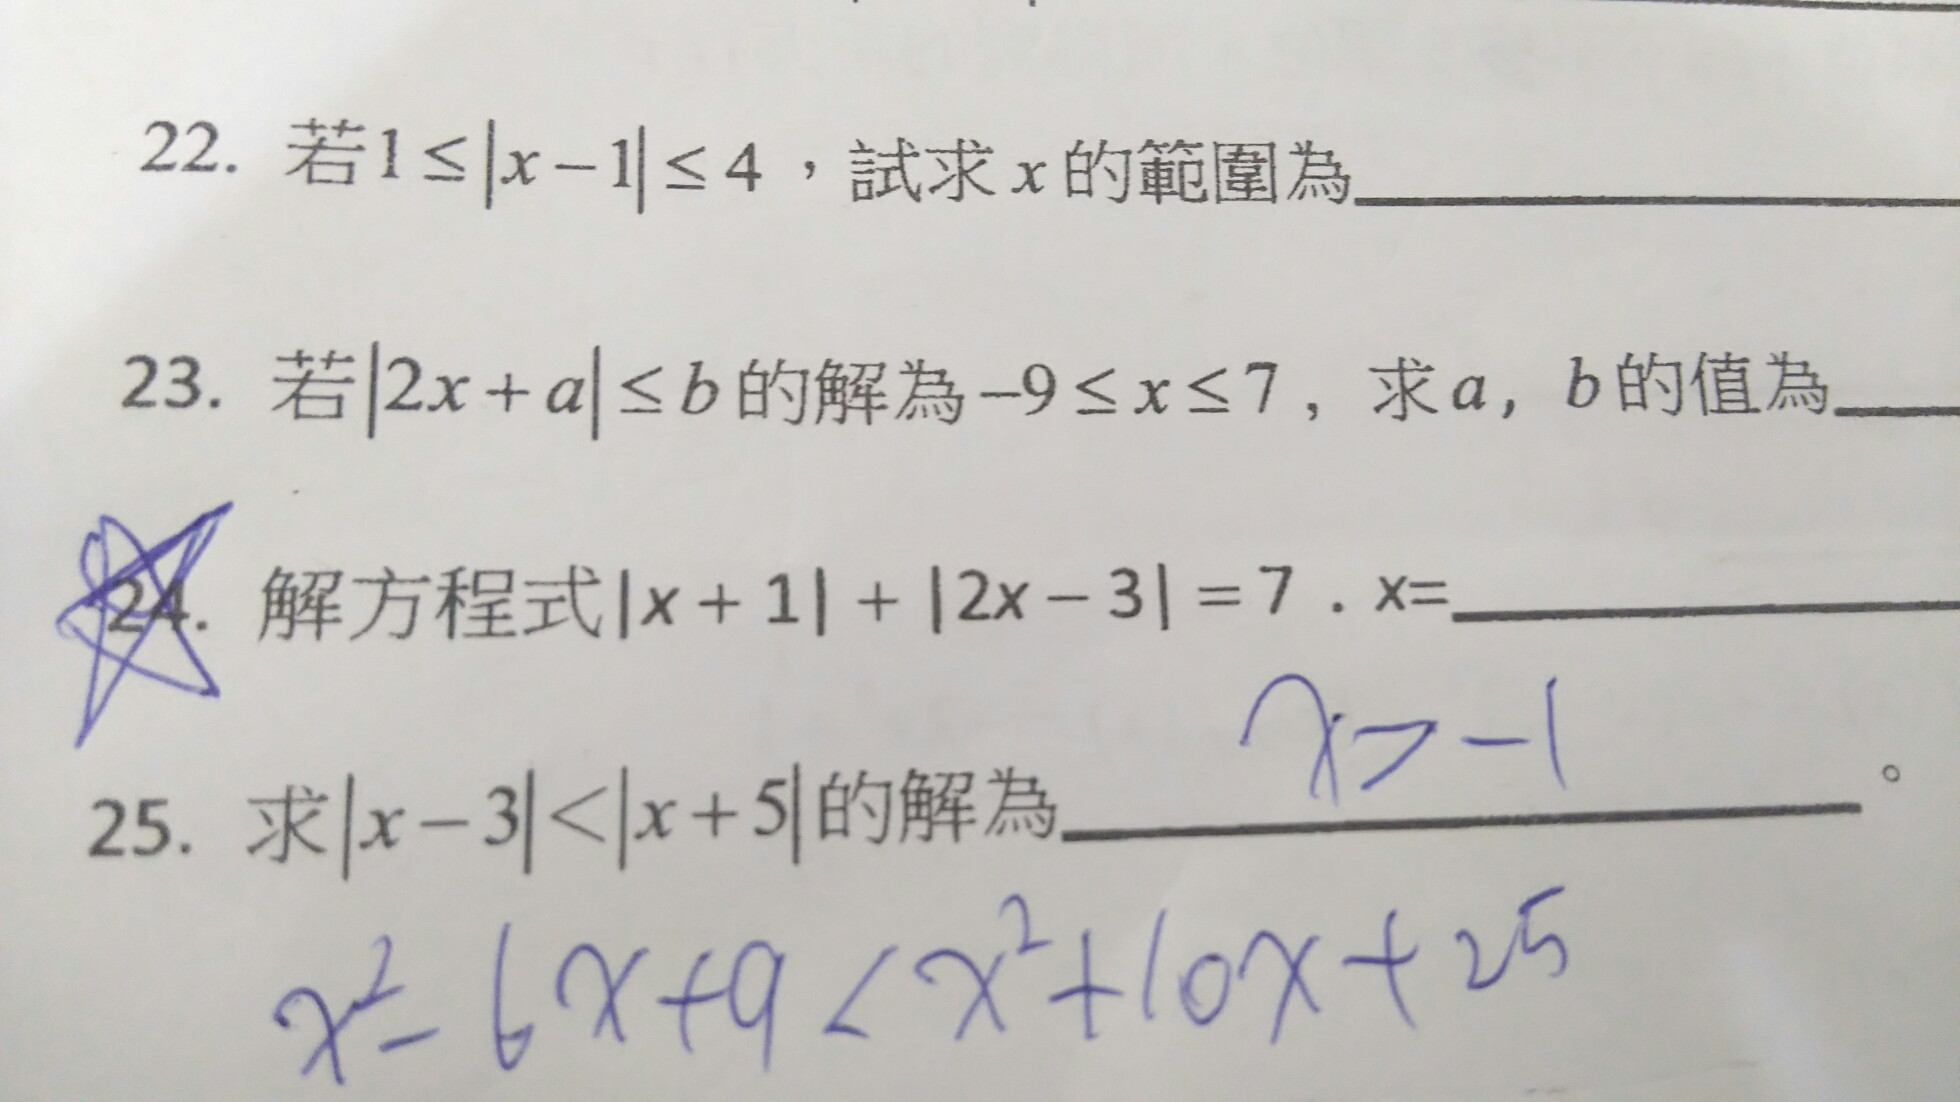 22. 若1≤|x−1|≤4，試求x的範圍為
23. 若|2x+a|≤b的解為−9≤x≤7, 求a, b的值為
24. 解方程式|x+1|+|2x−3|=7. x=
x>-1
25. 求|x−3|<|x+5|的解為 。
x²-6x+9<x²+10x+25